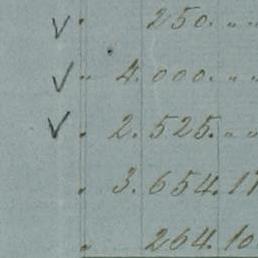 ✓ . 250. " "
✓ " 4.000. " "
✓ . 2.525. " "
. 3.654.17
. 264.10